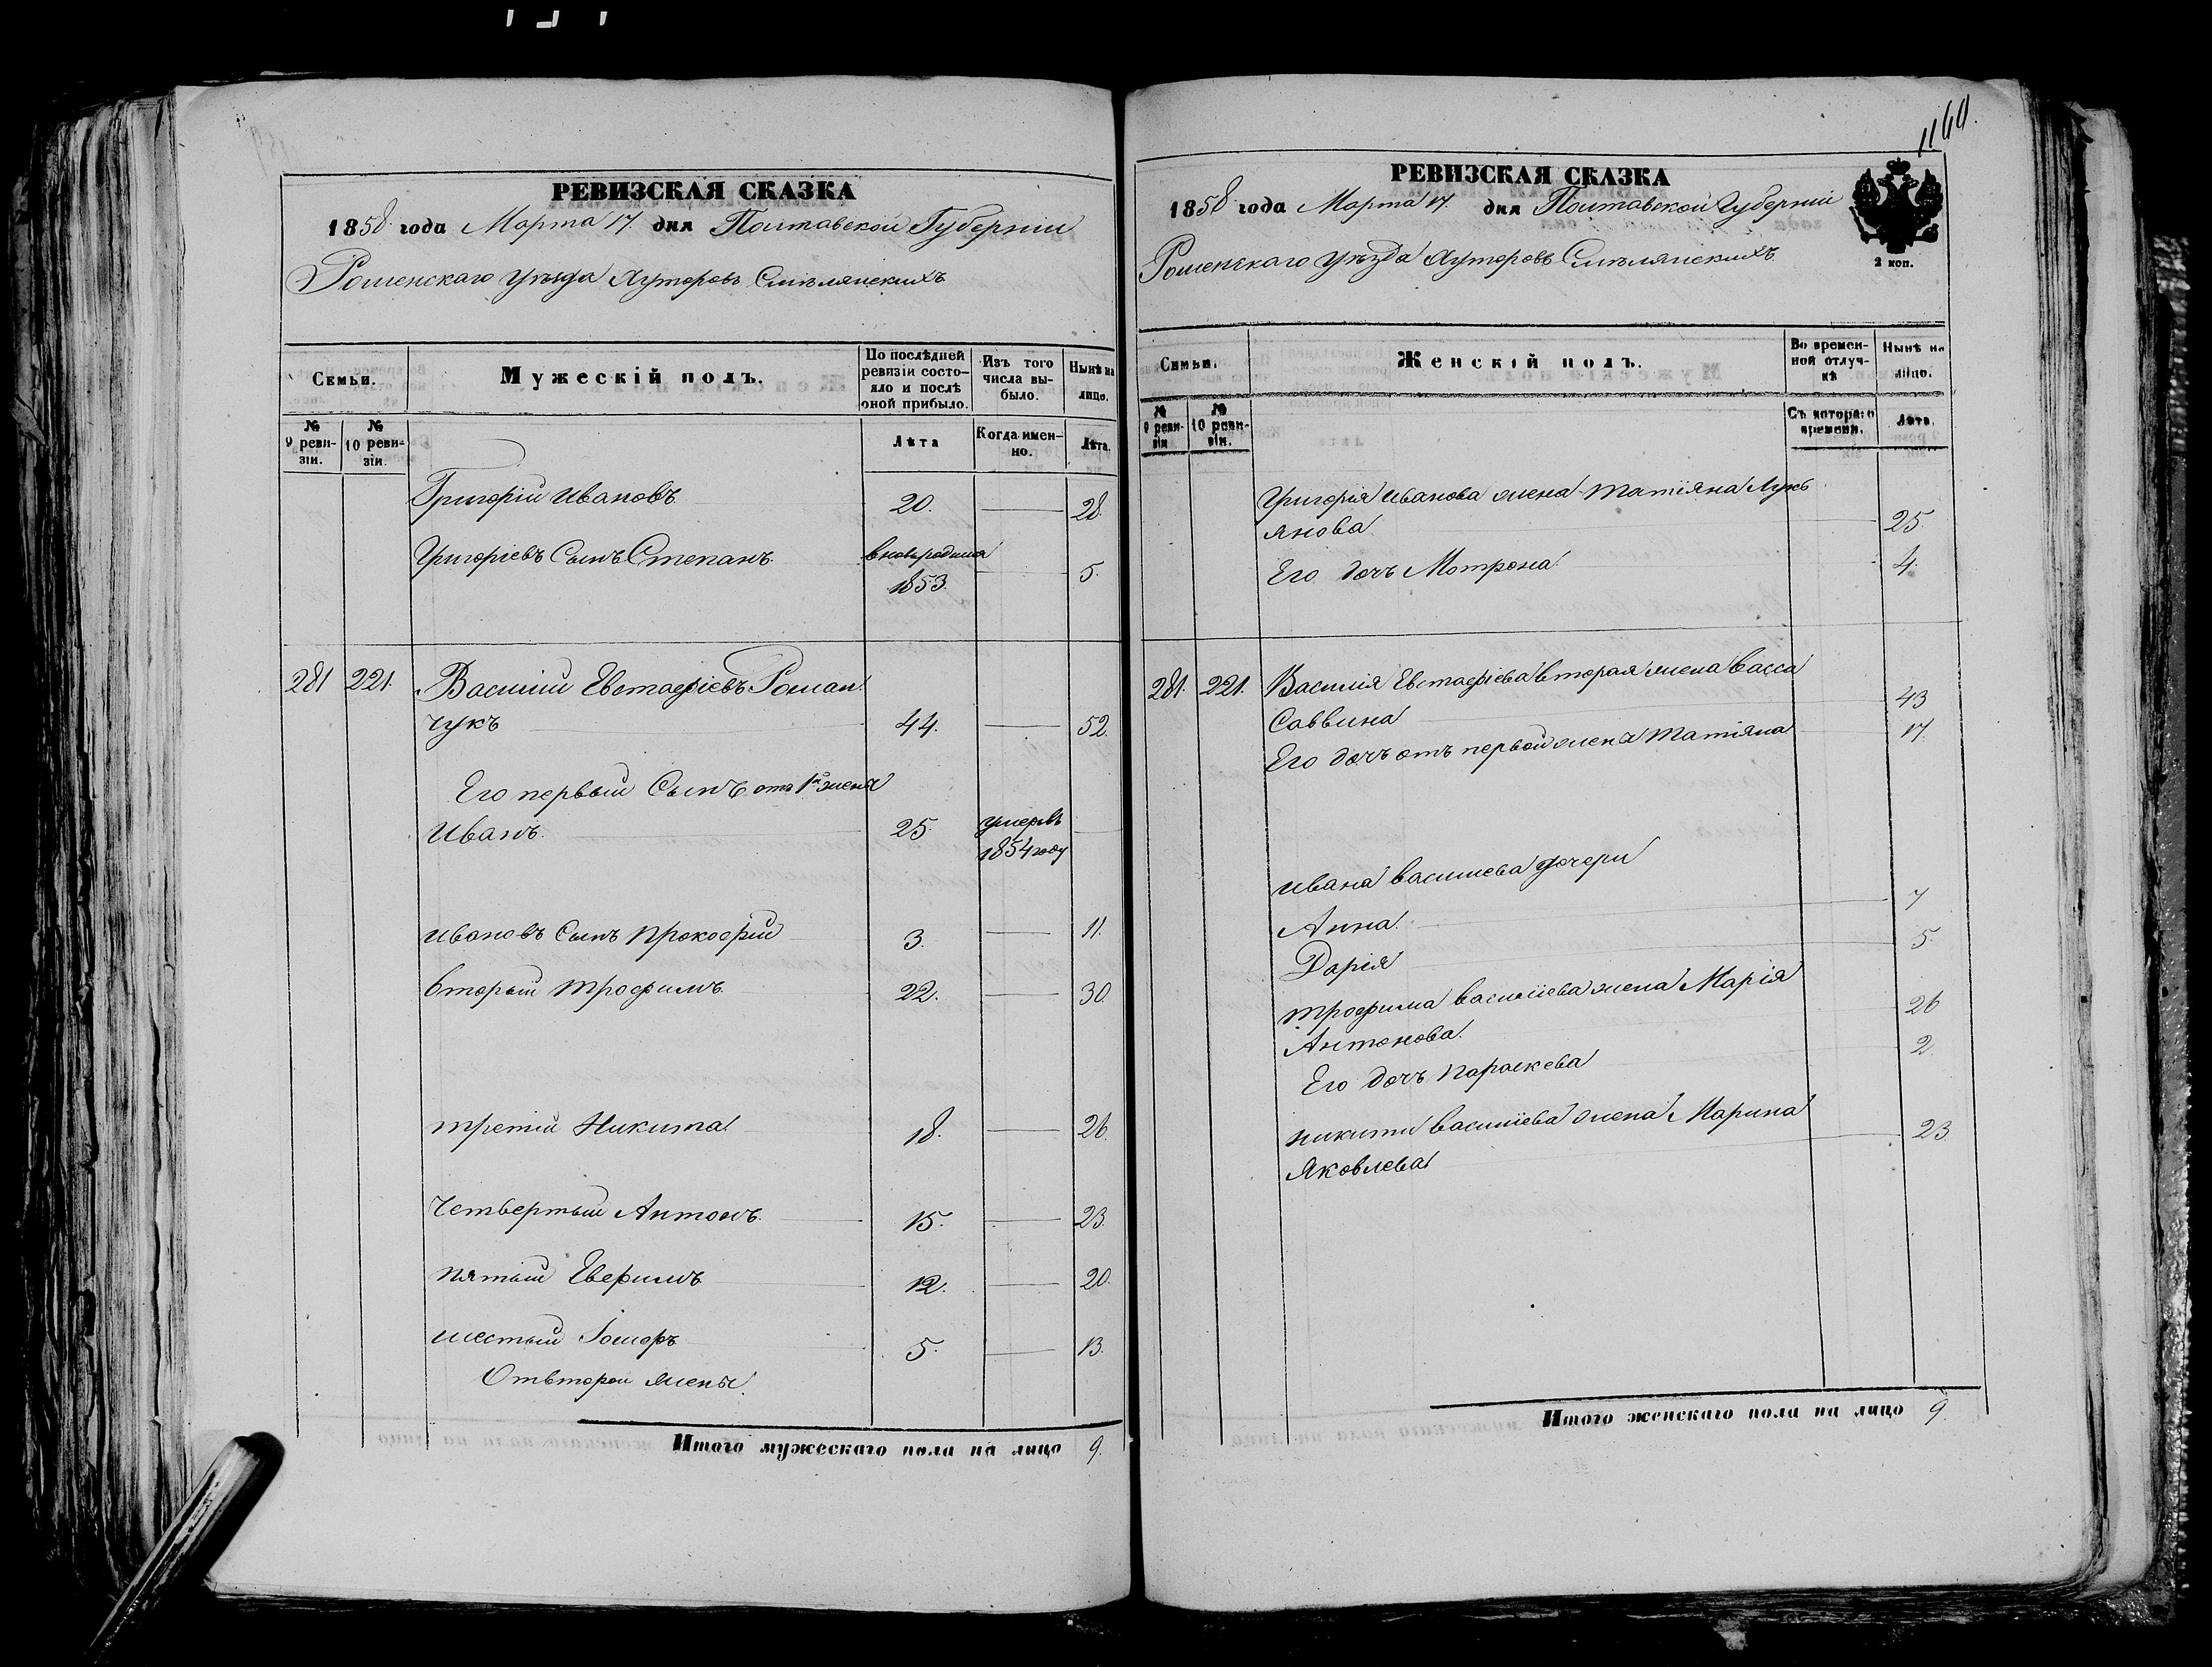 РЕВИЗСКАЯ СКАЗКА
1858 года Марта 17. дня Полтавской Губерніи
Роменскаго уѣзда Хуторовъ Смѣлянскихъ
Семьи.
Мужескій полъ.
По послѣдней ревизіи состояло и послѣ оной прибыло.
Изъ того числа выбыло.
Нынѣ на лицо.
№ 9 ревизіи.
№ 10 ревизіи.
Лѣта
Когда именно.
Лѣта.
Григорій Ивановъ 20. 28.
Григоріевъ Сынъ Степанъ вновьродился 1853. 5.
281 221. Василій Евстафіевъ Роман
чукъ 44. 52.
Его первый Сынъ отъ 1й жены
Иванъ. 25. умеръ въ 1854 году
Ивановъ Сынъ Прокофій 3. 11.
вторый Трофимъ 22. 30.
третій Никита 18. 26.
четвертый Антонъ. 15. 23.
пятый Евфимъ 12. 20.
шестый 5. 13.
Отвторой жены
Итого мужескаго пола на лицо 9.
1160.
РЕВИЗСКАЯ СКАЗКА
1858 года Марта 17. дня Полтавской Губерніи
Роменскаго уѣзда Хуторовъ Смѣлянскихъ
2 коп.
Семьи.
Женскій полъ.
Во временной отлучкѣ
Нынѣ на лицо.
№ 9 ревизіи
№ 10 ревизіи.
Съ котораго времени.
Лѣта.
Григорія Иванова жена Татіяна Лукъ
янова 25.
Его дочь Мотрона 4.
281. 221. Василія Евстафіева вторая жена Васса
Саввина 43
Его дочь отъ первой жены Татіяна 17.
Ивана Василіева дочери
Анна. 7
Дарія 5.
Трофима Василіева жена Марія
Антонова. 26
Его дочь Параскева 2.
Никиты Василіева жена Марина
Яковлева 23
Итого женскаго пола на лицо 9.